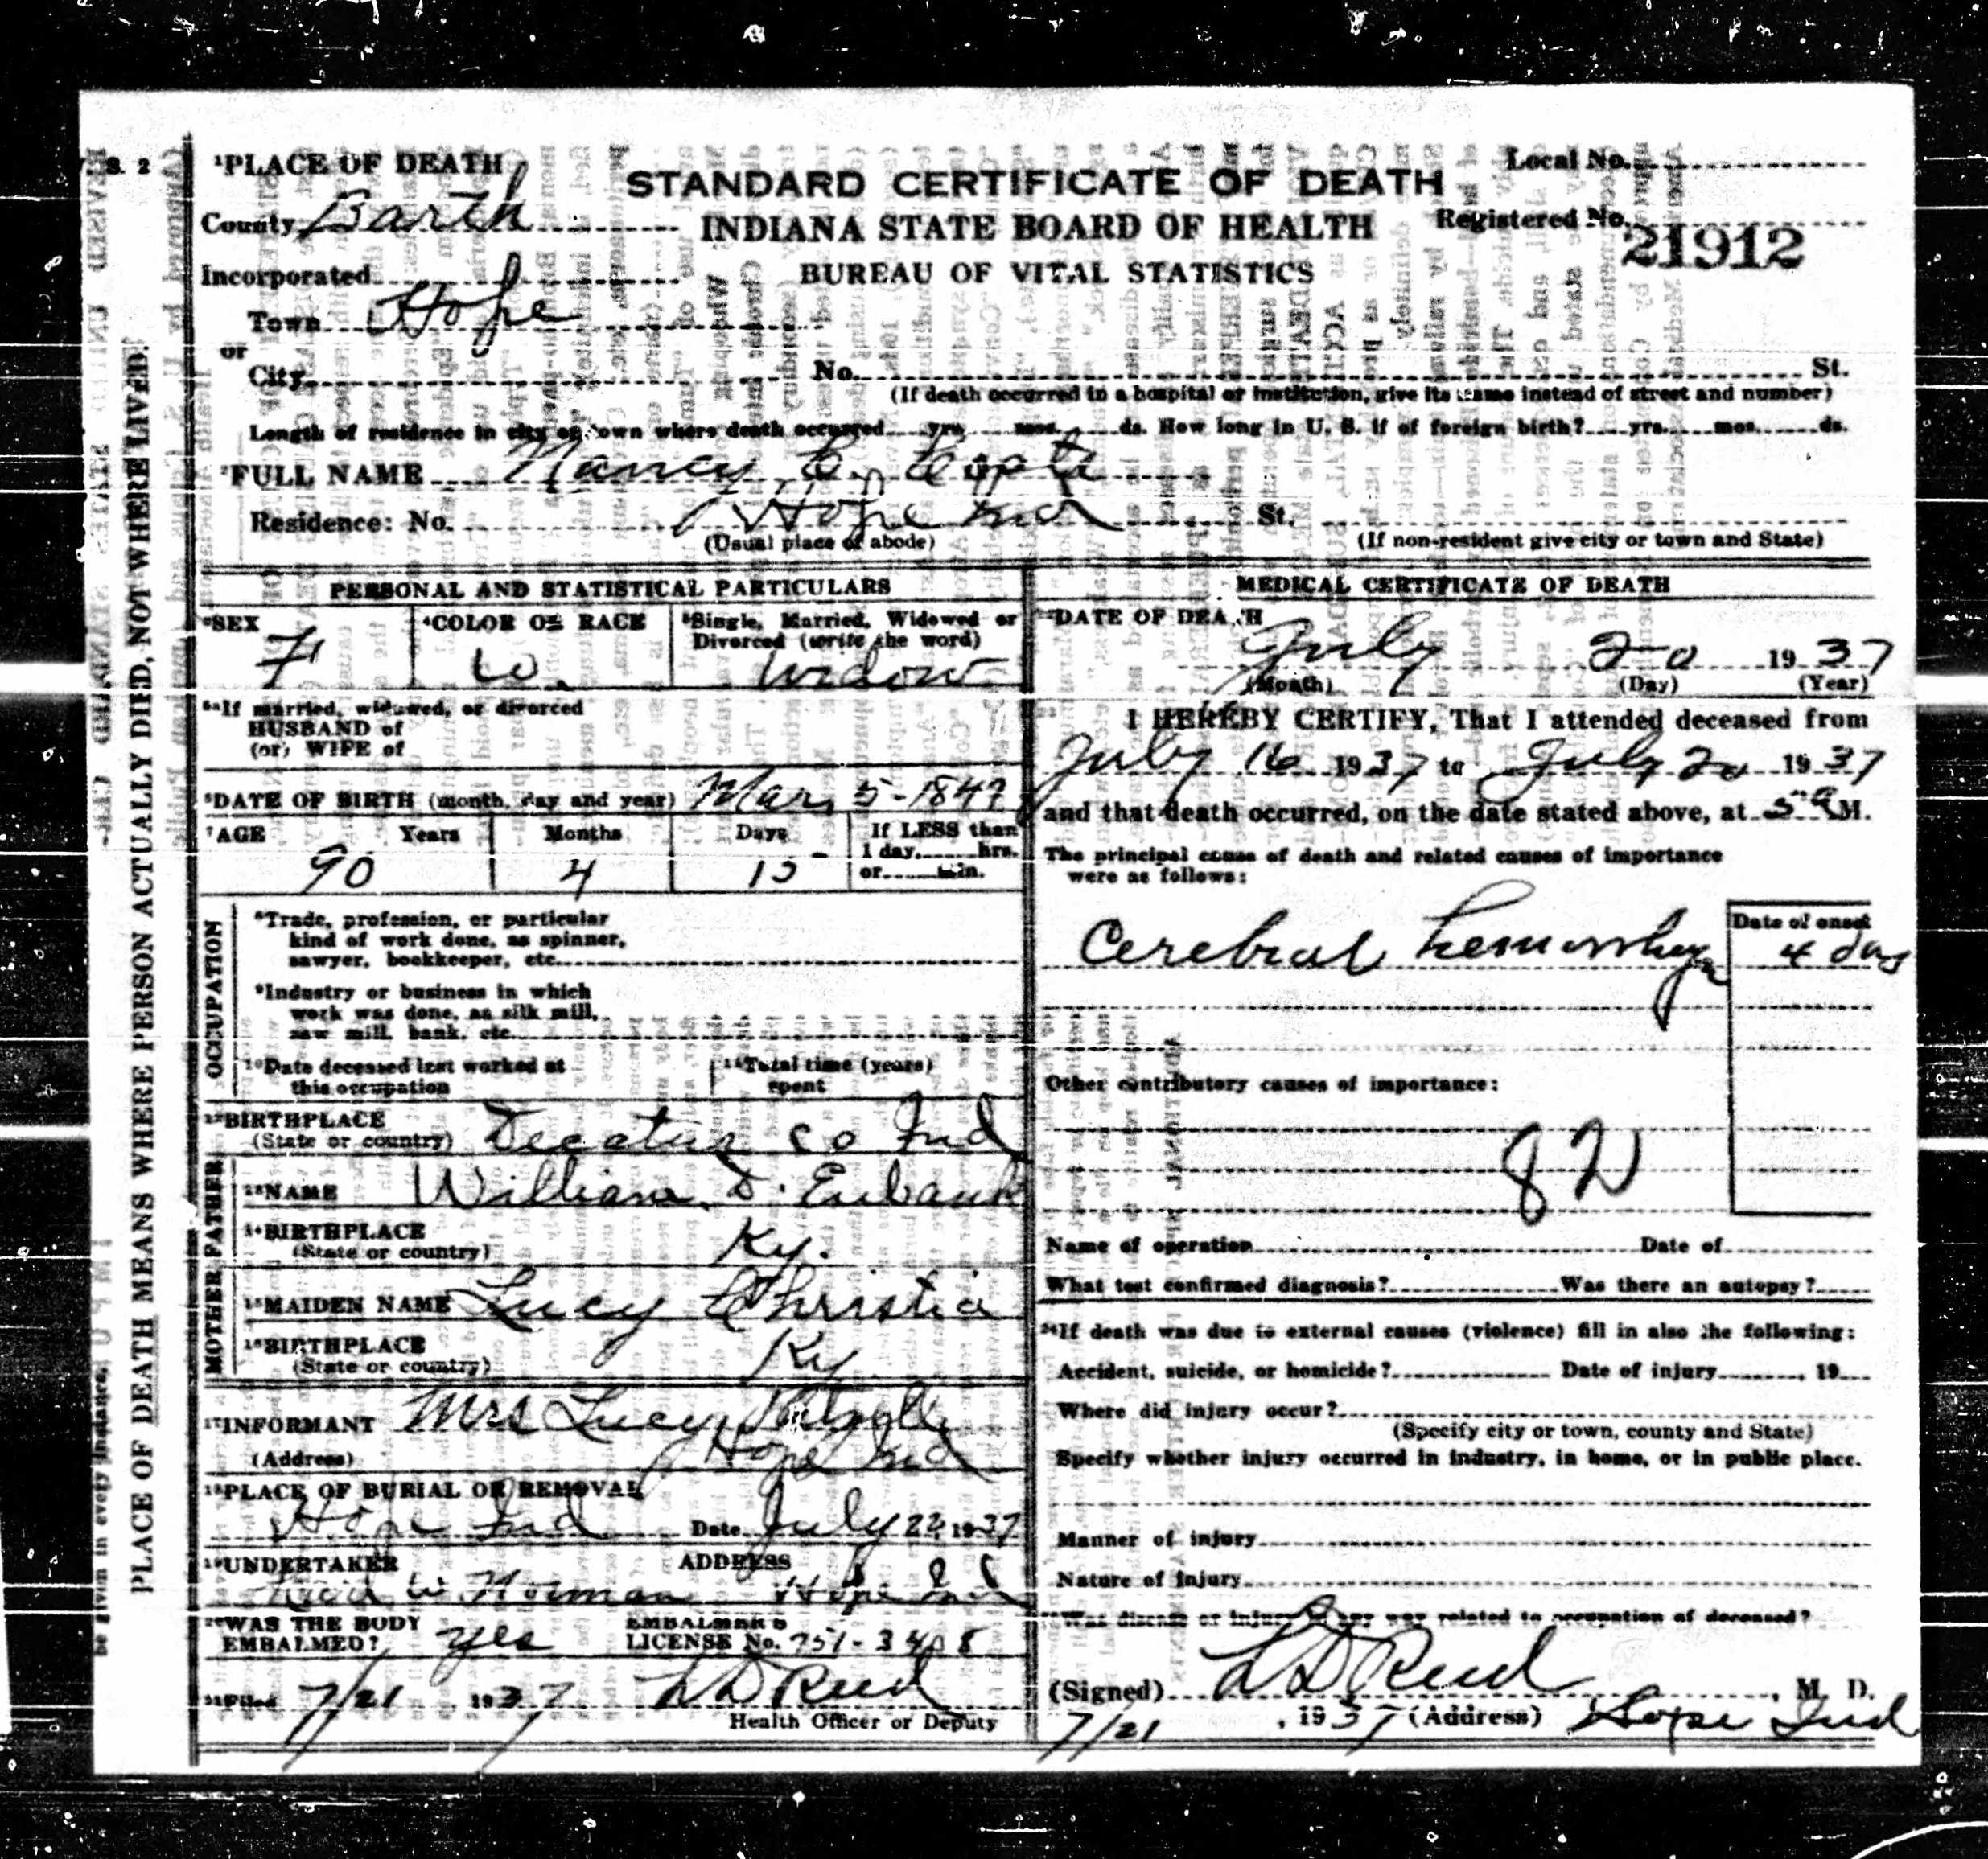 S. 2
¹PLACE OF DEATH
STANDARD CERTIFICATE OF DEATH
Local No.
County Barth
INDIANA STATE BOARD OF HEALTH
Registered No. 21912
Incorporated
BUREAU OF VITAL STATISTICS
Town Hope
or
City No. St.
(If death occurred in a hospital or institution, give its name instead of street and number)
Length of residence in city or town where death occurred yrs. mos. ds. How long in U. S. if of foreign birth? yrs. mos. ds.
²FULL NAME Nancy E.
Residence: No. Hope Ind St.
(Usual place of abode) (If non-resident give city or town and State)
PERSONAL AND STATISTICAL PARTICULARS
³SEX F
⁴COLOR OR RACE W.
⁵Single, Married, Widowed or Divorced (write the word) Widow
⁵ᵃIf married, widowed, or divorced
HUSBAND of
(or) WIFE of
⁶DATE OF BIRTH (month, day and year) Mar. 5-1847
⁷AGE Years Months Days If LESS than
1 day, hrs.
or min.
90 4 15
OCCUPATION
⁸Trade, profession, or particular
kind of work done, as spinner,
sawyer, bookkeeper, etc.
⁹Industry or business in which
work was done, as silk mill,
saw mill, bank, etc.
¹⁰Date deceased last worked at
this occupation
¹¹Total time (years)
spent
¹²BIRTHPLACE
(State or country) Decatur Co Ind
FATHER
¹³NAME William D. Eubank
¹⁴BIRTHPLACE
(State or country) Ky.
MOTHER
¹⁵MAIDEN NAME Lucy Christia
¹⁶BIRTHPLACE
(State or country) Ky
¹⁷INFORMANT Mrs Lucy
(Address) Hope Ind
¹⁸PLACE OF BURIAL OR REMOVAL
Hope Ind Date July 22, 1937
¹⁹UNDERTAKER ADDRESS
W Norman Hope Ind
²⁰WAS THE BODY
EMBALMED? yes
EMBALMER'S
LICENSE No. 751-3408
²¹Filed 7/21 1937 L D Reed
Health Officer or Deputy
MEDICAL CERTIFICATE OF DEATH
²²DATE OF DEATH
July 20 1937
(Month) (Day) (Year)
I HEREBY CERTIFY, That I attended deceased from
July 16 1937 to July 20 1937
and that death occurred, on the date stated above, at 5 a M.
The principal cause of death and related causes of importance
were as follows:
Date of onset
Cerebral hemorrhage 4 days
Other contributory causes of importance:
82
Name of operation Date of
What test confirmed diagnosis? Was there an autopsy?
²⁴If death was due to external causes (violence) fill in also the following:
Accident, suicide, or homicide? Date of injury , 19
Where did injury occur?
(Specify city or town, county and State)
Specify whether injury occurred in industry, in home, or in public place.
Manner of injury
Nature of injury
Was disease or injury in any way related to occupation of deceased?
(Signed) L D Reed , M. D.
7/21 , 1937 (Address) Hope Ind
PLACE OF DEATH MEANS WHERE PERSON ACTUALLY DIED, NOT WHERE LIVED.
be given in every instance.